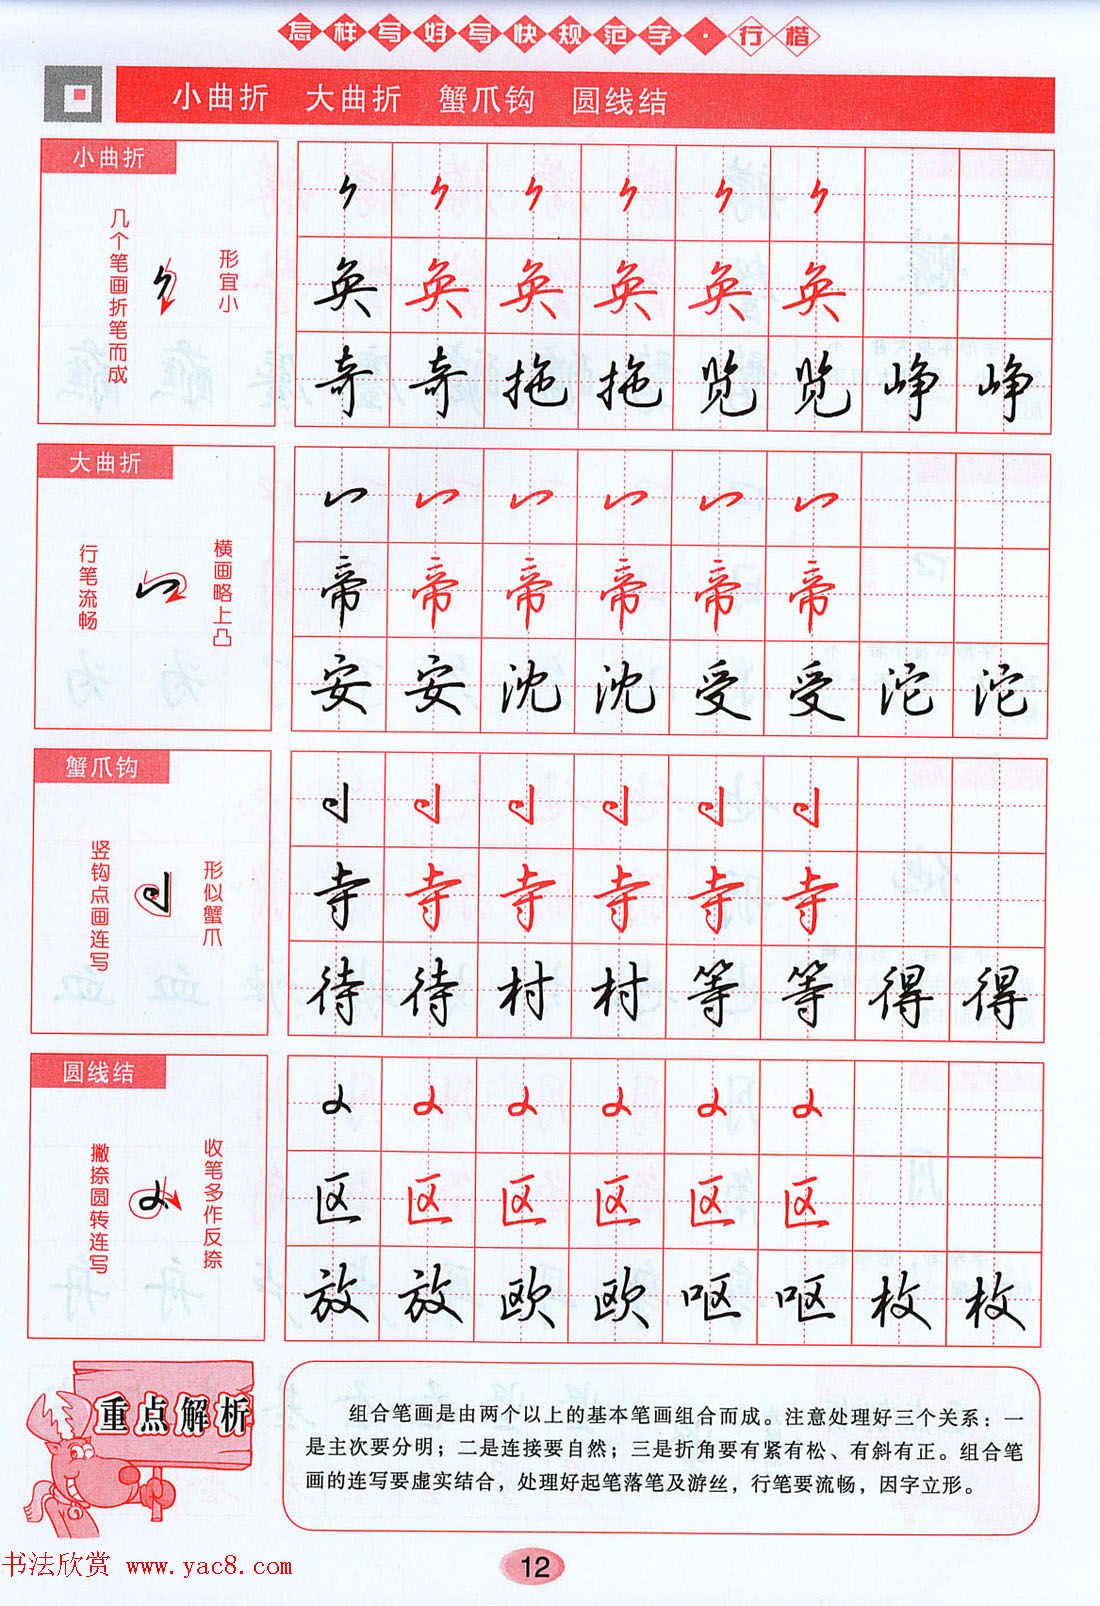 怎样写好写快规范字·行楷
小曲折 大曲折 蟹爪钩 圆线结
小曲折
形宜小
几个笔画折笔而成
奂 奂 奂 奂 奂 奂
奇 奇 拖 拖 览 览 峥 峥
大曲折
横画略上凸
行笔流畅
帝 帝 帝 帝 帝 帝
安 安 沈 沈 受 受 沱 沱
蟹爪钩
形似蟹爪
竖钩点画连写
寺 寺 寺 寺 寺 寺
待 待 村 村 等 等 得 得
圆线结
收笔多作反捺
撇捺圆转连写
区 区 区 区 区 区
放 放 欧 欧 呕 呕 枚 枚
重点解析
组合笔画是由两个以上的基本笔画组合而成。注意处理好三个关系：一
是主次要分明；二是连接要自然；三是折角要有紧有松、有斜有正。组合笔
画的连写要虚实结合，处理好起笔落笔及游丝，行笔要流畅，因字立形。
书法欣赏 www.yac8.com
12